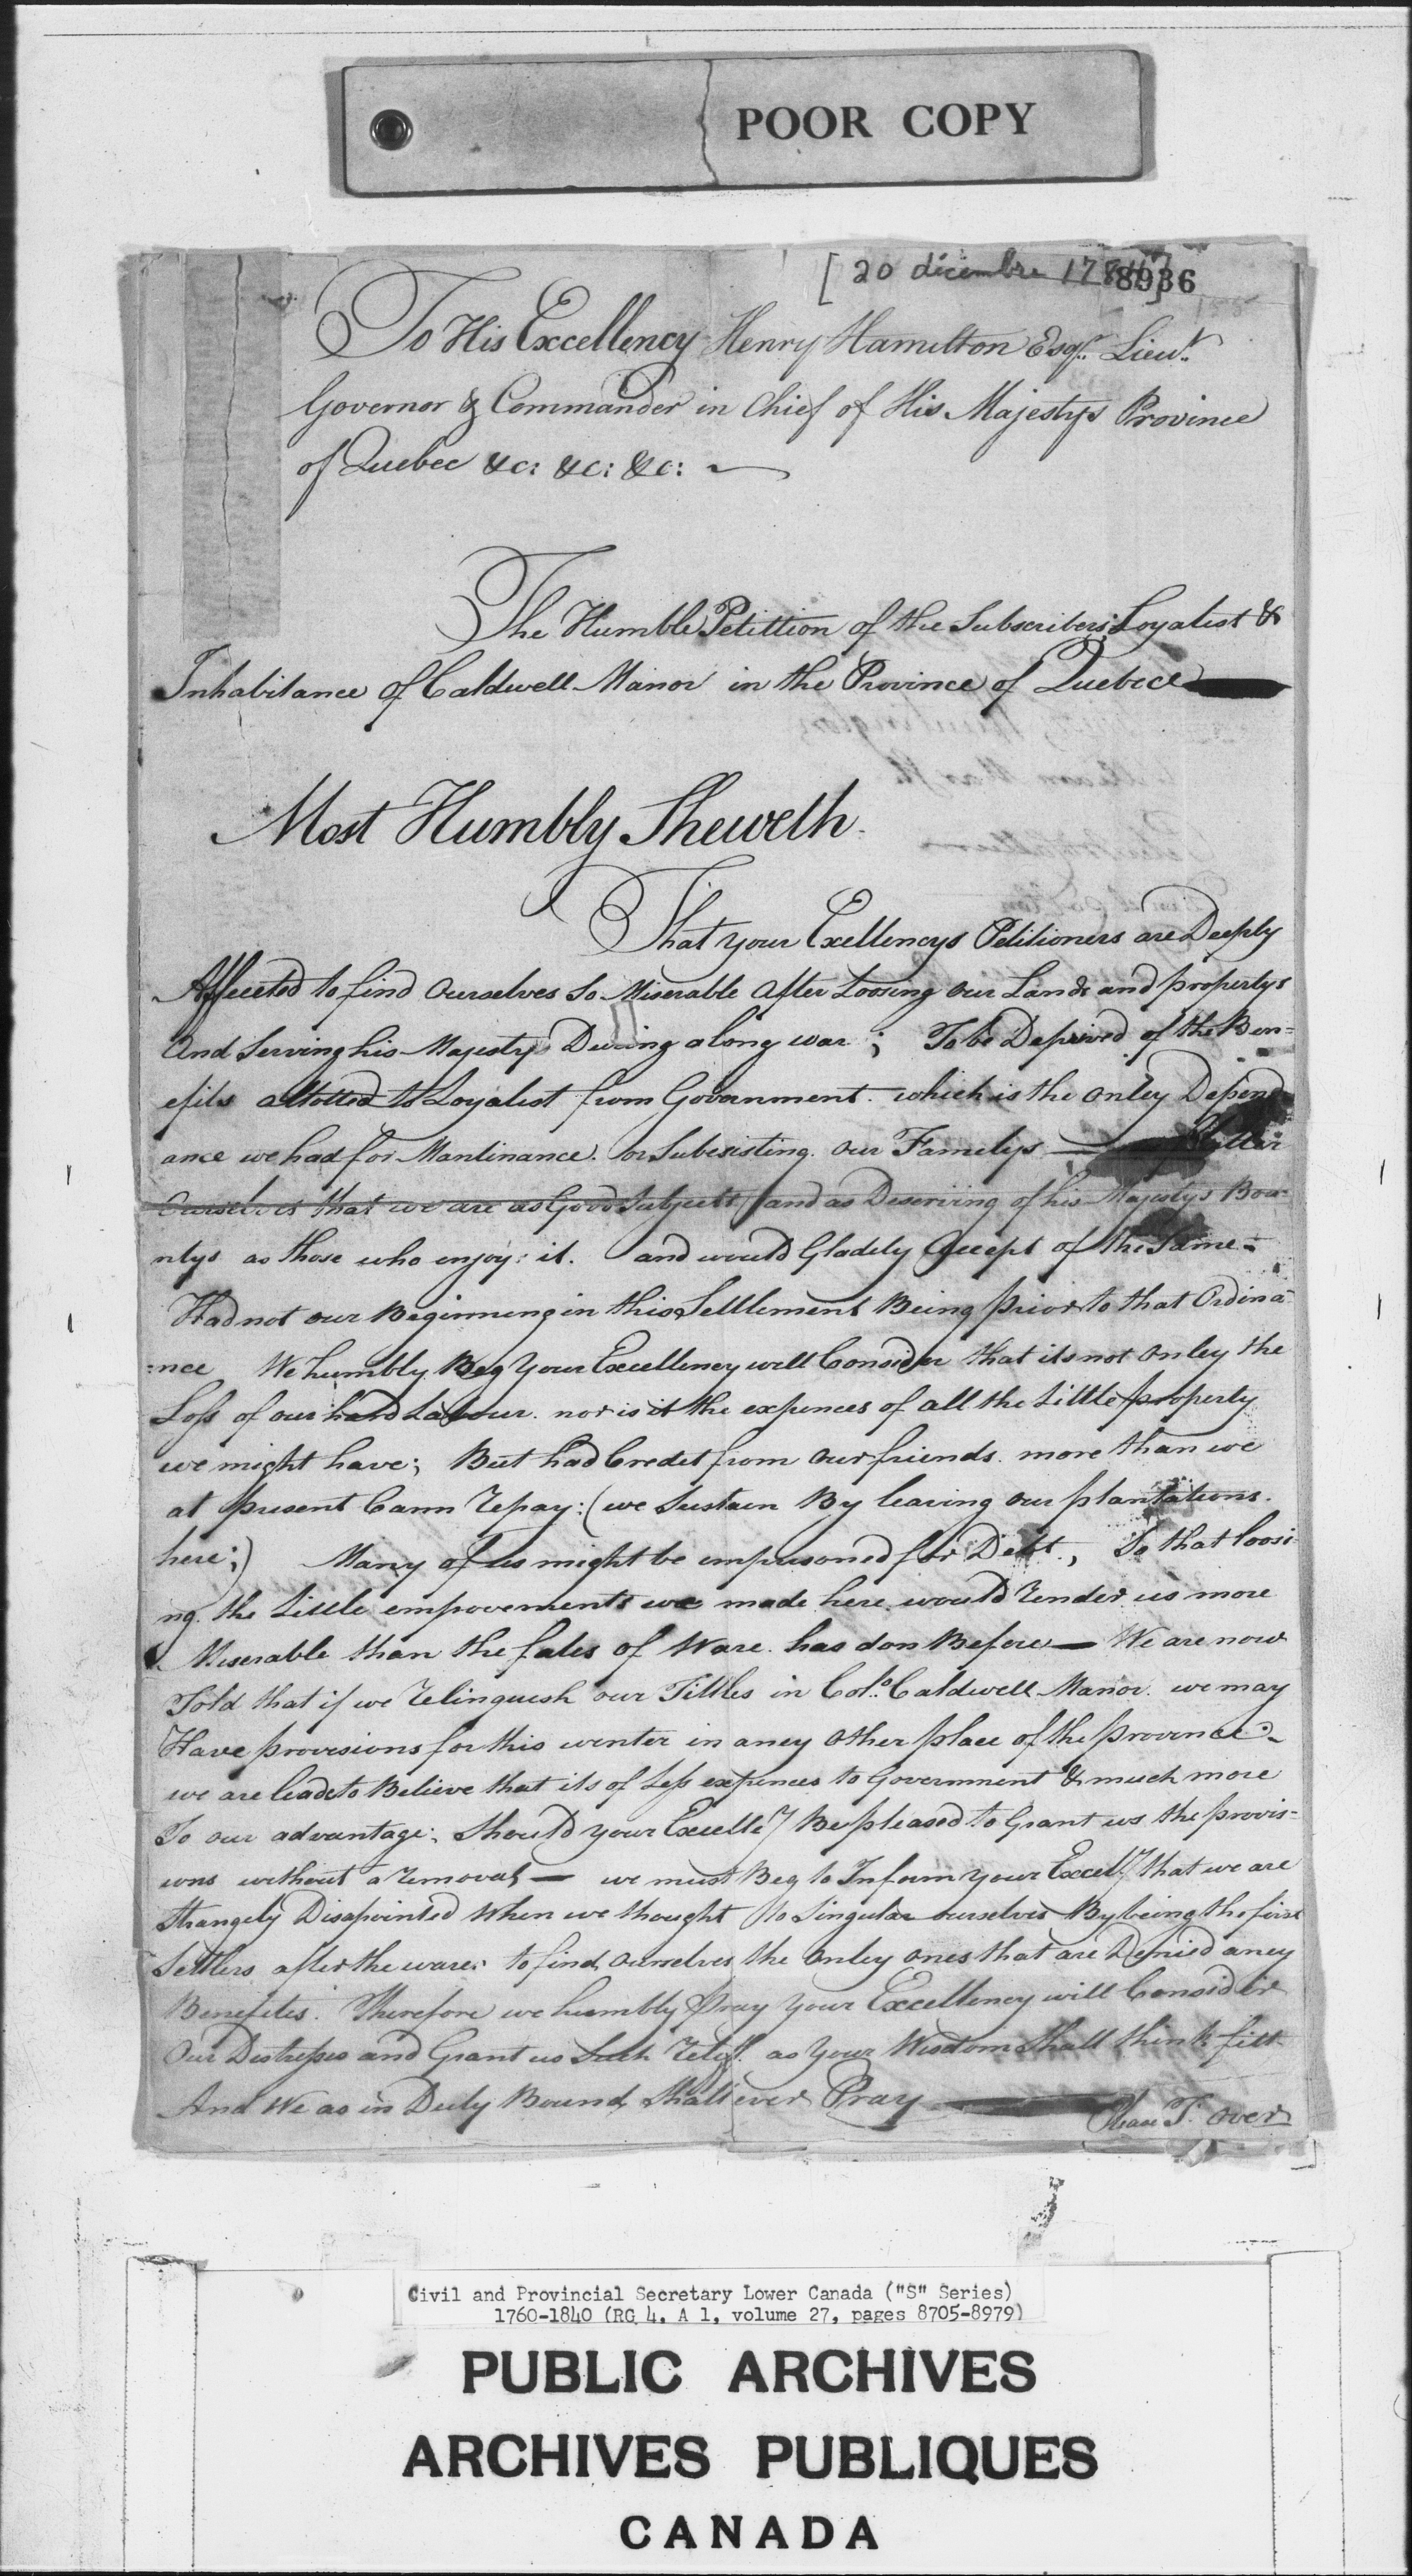 POOR COPY
[20 décembre 178
8936
To His Excellency Henry Hamilton Esqr. Lieut.
Governor & Commander in Chief of His Majestys Province
of Quebec &c: &c: &c:
The Humble Petittion of the Subscribers Loyalist &
Inhabitance of Caldwell Manor in the Province of Quebece
Most Humbly Sheweth.
That your Exellencys Petitioners are Deeply
Affeceted to find Ourselves So Miserable After Loosing our Lands and propertys
And Serving his Majesty During along war; To be Deprived of the Ben=
efits allotted to Loyalist from Government. which is the onley Depend
ance we had for Mantinance. or Subsisting. our Familys
Ourselves that we are as Good Subjects and as Deserving of his Majestys Bou=
ntys as those who enjoy: it. and would Gladely Accept of the Same=
Had not our Beginning in this Settlement Being prior to that Ordina=
:nce We humbly Beg Your Excellency will Consider that its not onley the
Loss of our hard Labour. nor is it the expences of all the Little property
we might have; But had Credet from our friends. more than we
at present Cann Repay: (we Sustain By leaving our plantations.
here;) Many of us might be imprisoned for Debt, So that loosi
ng. the Little empovements we made here would render us more
Miserable than the fates of Ware. has don Before — We are now
Told that if we relinquish our Tittles in Colo. Caldwell Manor. we may
Have provisions for this winter in aney other place of the province.
we are leadeto Believe that its of Less expences to Government & much more
To our advantage; Should your Excelley Be pleased to Grant us the provis=
ions without a removal — we must Beg to Inform your Excelly that we are
Strangely Disapointed When we thought to Singular ourselves By being the first
Settlers after the ware: to find ourselves the onley ones that are Denied aney
Benefites. Therefore we humbly Pray your Excellency will Consider
Our Distresses and Grant us Such relief. as your Wisdom Shall think fitt
And We as in Duty Bound Shall ever Pray
Pleas T. over
Civil and Provincial Secretary Lower Canada ("S" Series)
1760-1840 (RG 4, A 1, volume 27, pages 8705-8979)
PUBLIC ARCHIVES
ARCHIVES PUBLIQUES
CANADA